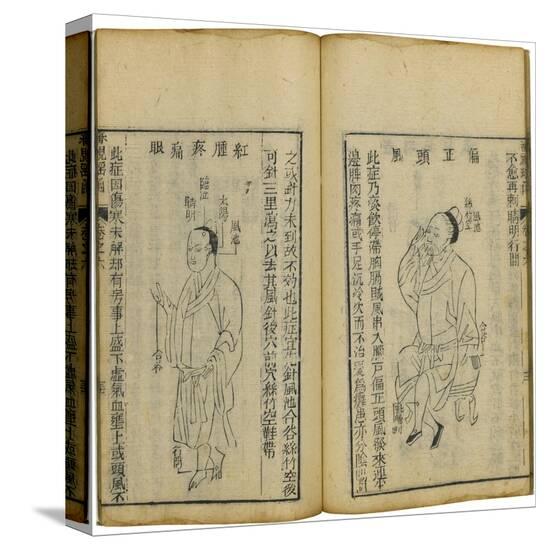 不愈再刺睛明行間
偏正頭風
風池
絲竹空
合谷
此症乃痰飲停滯胸膈賊風串入腦戶偏正頭風發來連半
邊脾肉疼痛或手足沉冷久而不治變爲癱患亦分陰
之或針力未到故不効也此症宜針風池合谷絲竹空後
可針三里瀉之以去其風針後穴前穴絲竹空鞋帶
紅腫疼痛眼
風池
太陽
臨泣
睛明
合谷
行間
此症因傷寒未解却有房事上盛下虛氣血壅上或頭風不
審視瑤函
卷之六